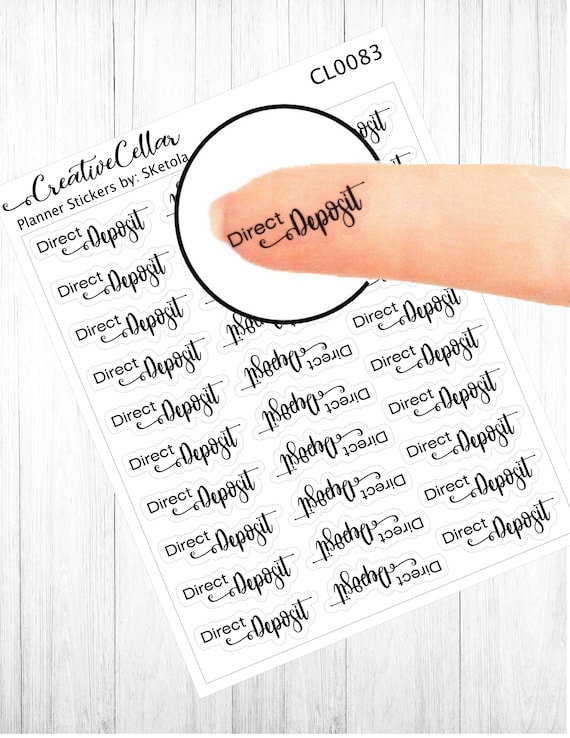 CL0083
CreativeCellar
Planner Stickers by: SKetola
Direct Deposit
Direct Deposit
Direct Deposit
Direct Deposit
Direct Deposit
Direct Deposit
Direct Deposit
Direct Deposit
Direct Deposit
Direct Deposit
Direct Deposit
Deposit
Direct Deposit
Direct Deposit
Direct Deposit
Direct Deposit
Direct Deposit
Direct Deposit
Direct Deposit
Direct Deposit
Direct Deposit
Direct Deposit
Direct Deposit
Direct Deposit